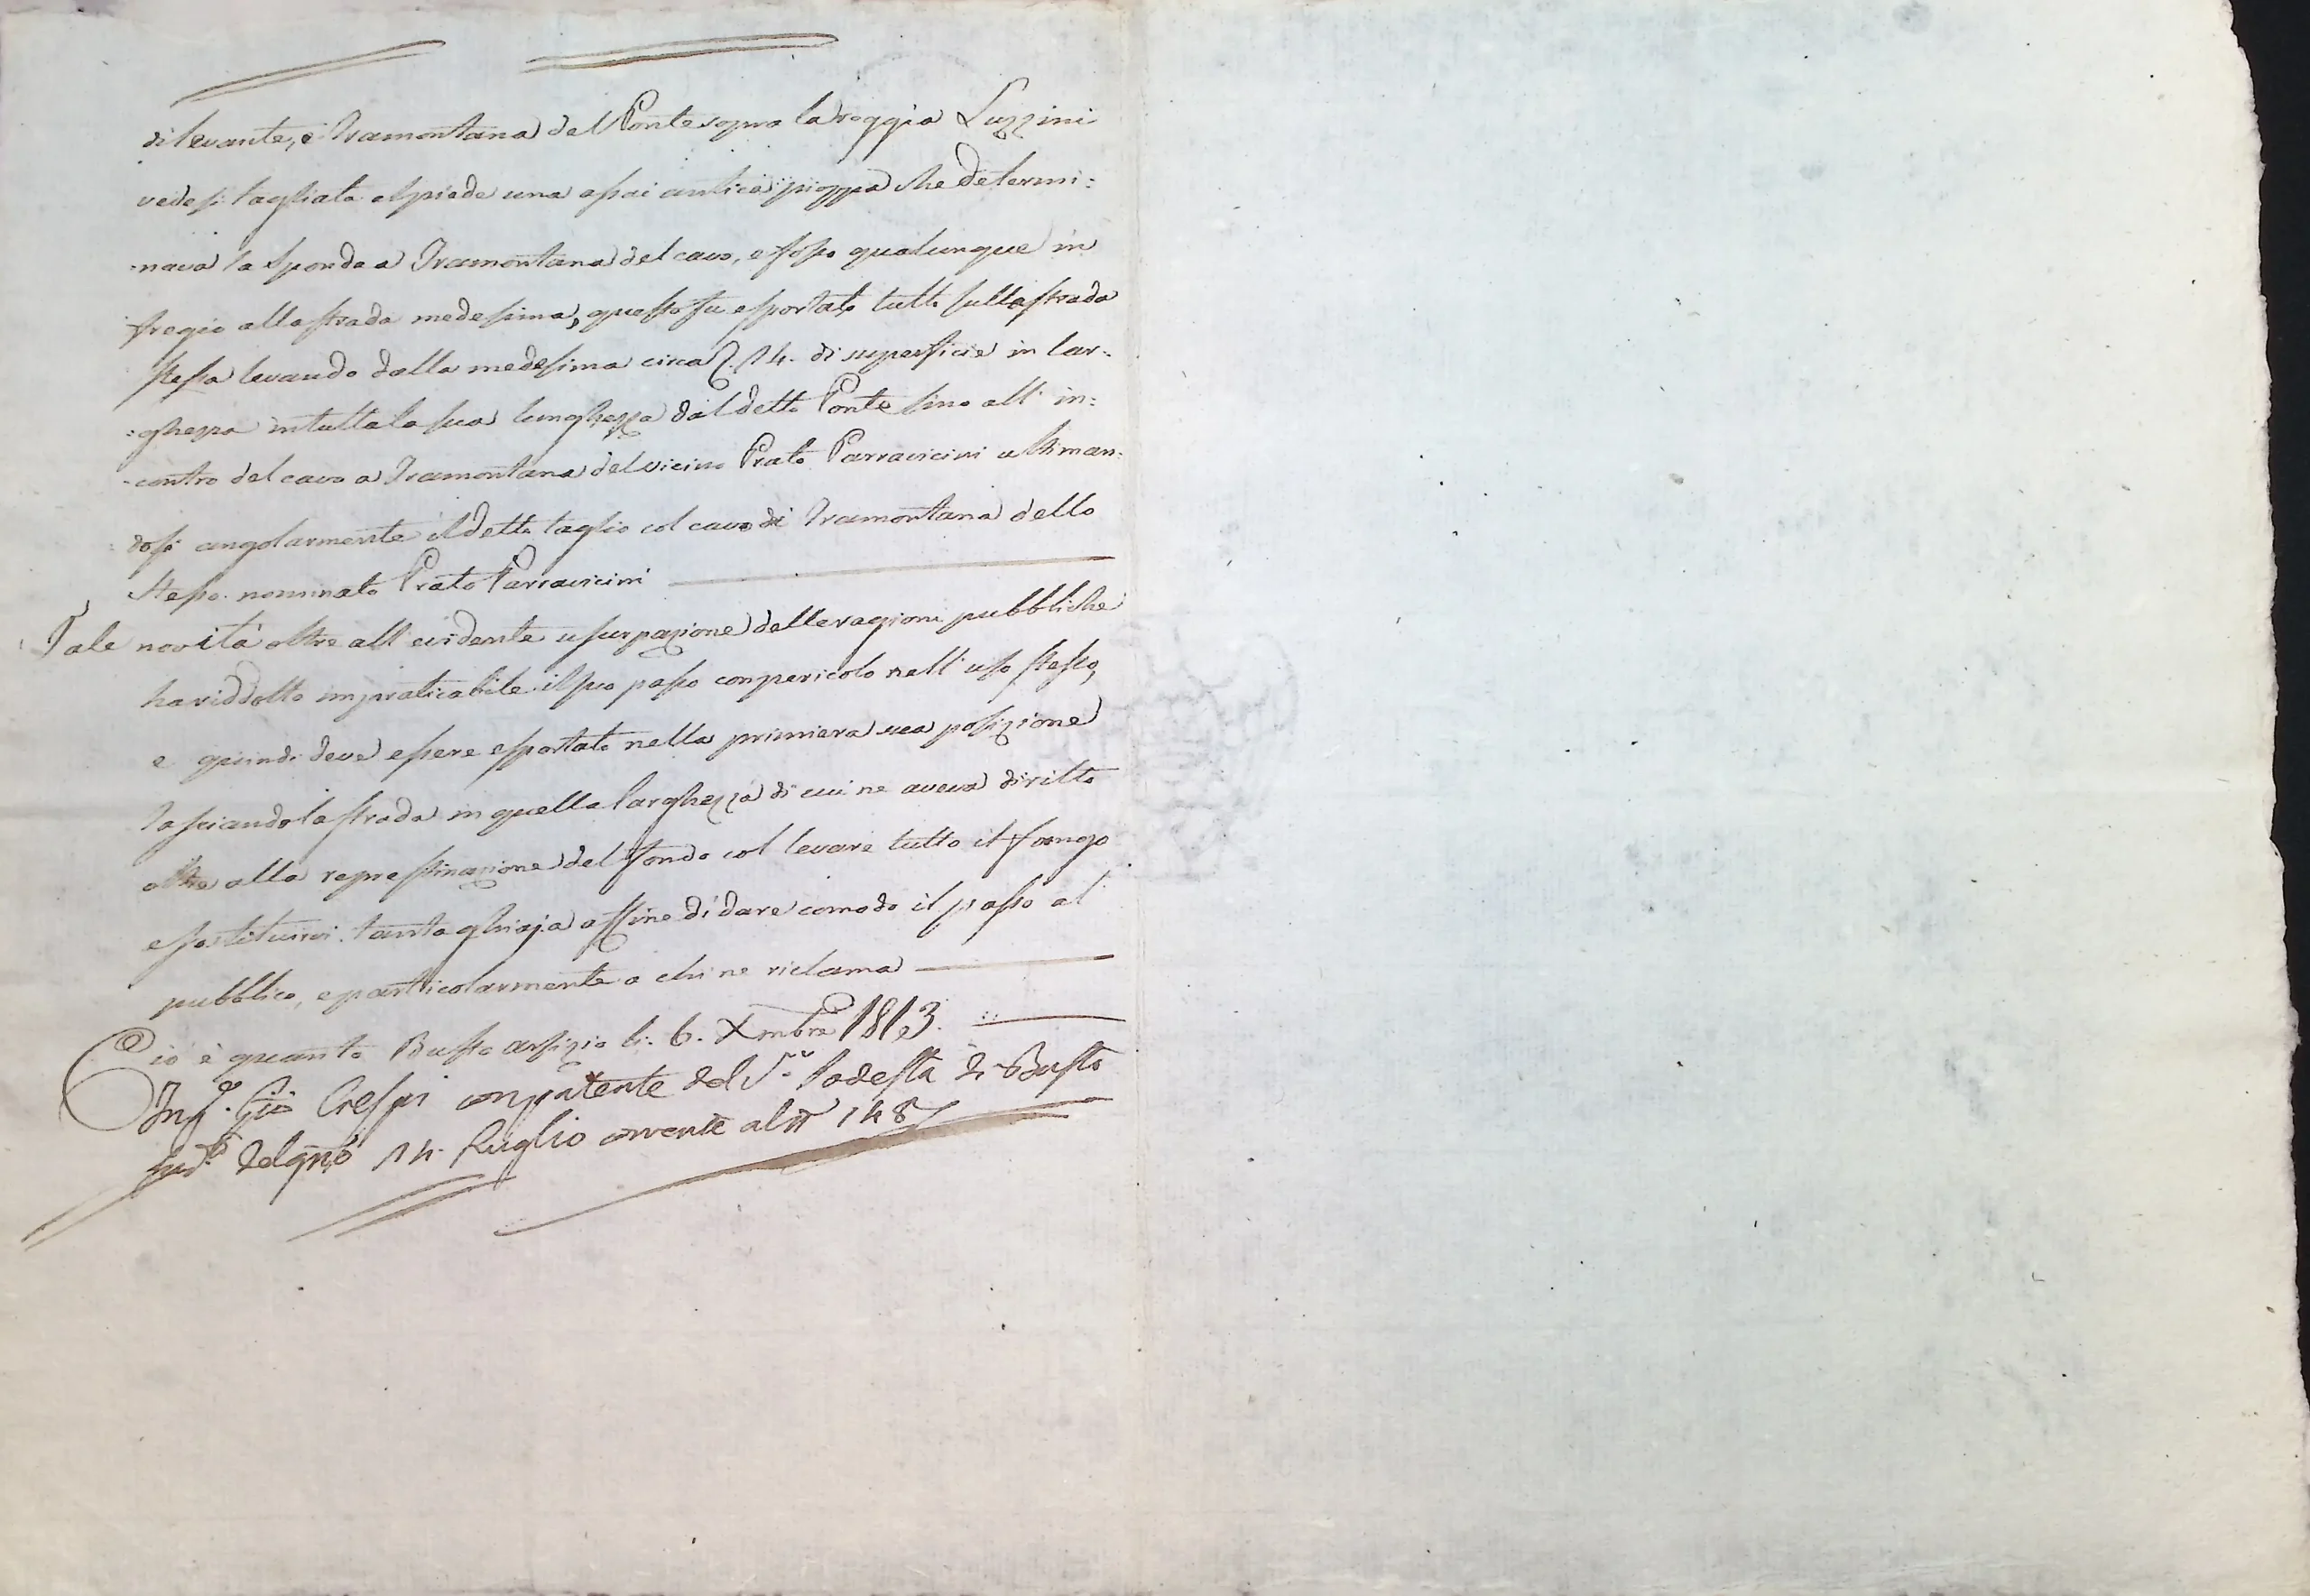 di levante, e Tramontana del Ponte sopra la roggia Luzzini
vedesi tagliata al piede una assai antica pioppa che determi:
:nava la sponda a Tramontana del cavo, e fosso qualunque in
fregio alla strada medesima, questo fu esportato tutto sulla strada
stessa levando dalla medesima circa 14. di superficie in lar:
:ghezza in tutta la sua lunghezza dal detto Ponte sino all' in:
:contro del cavo a Tramontana del vicino Prato Parravicini ultiman:
:dosi angolarmente il detto taglio col cavo di Tramontana dello
stesso nominato Prato Parravicini
Tale novità oltre all' evidente usurpazione delle ragioni pubbliche
ha riddotto impraticabile il suo passo con pericolo nell' uso stesso,
e quindi deve essere esportato nella primiera sua posizione
lasciando la strada in quella larghezza di cui ne aveva diritto
oltre alla repristinazione del fondo col levare tutto il fango
e sostituirvi tanta ghiaja affine di dare comodo il passo al
pubblico, e particolarmente a chi ne riclama
Ciò è quanto Busto arsizio li. 6. Xmbre 1813.
Ing.e Gio Crespi con patente del S.r Podestà di Busto
del 14. Luglio corrente al N 148